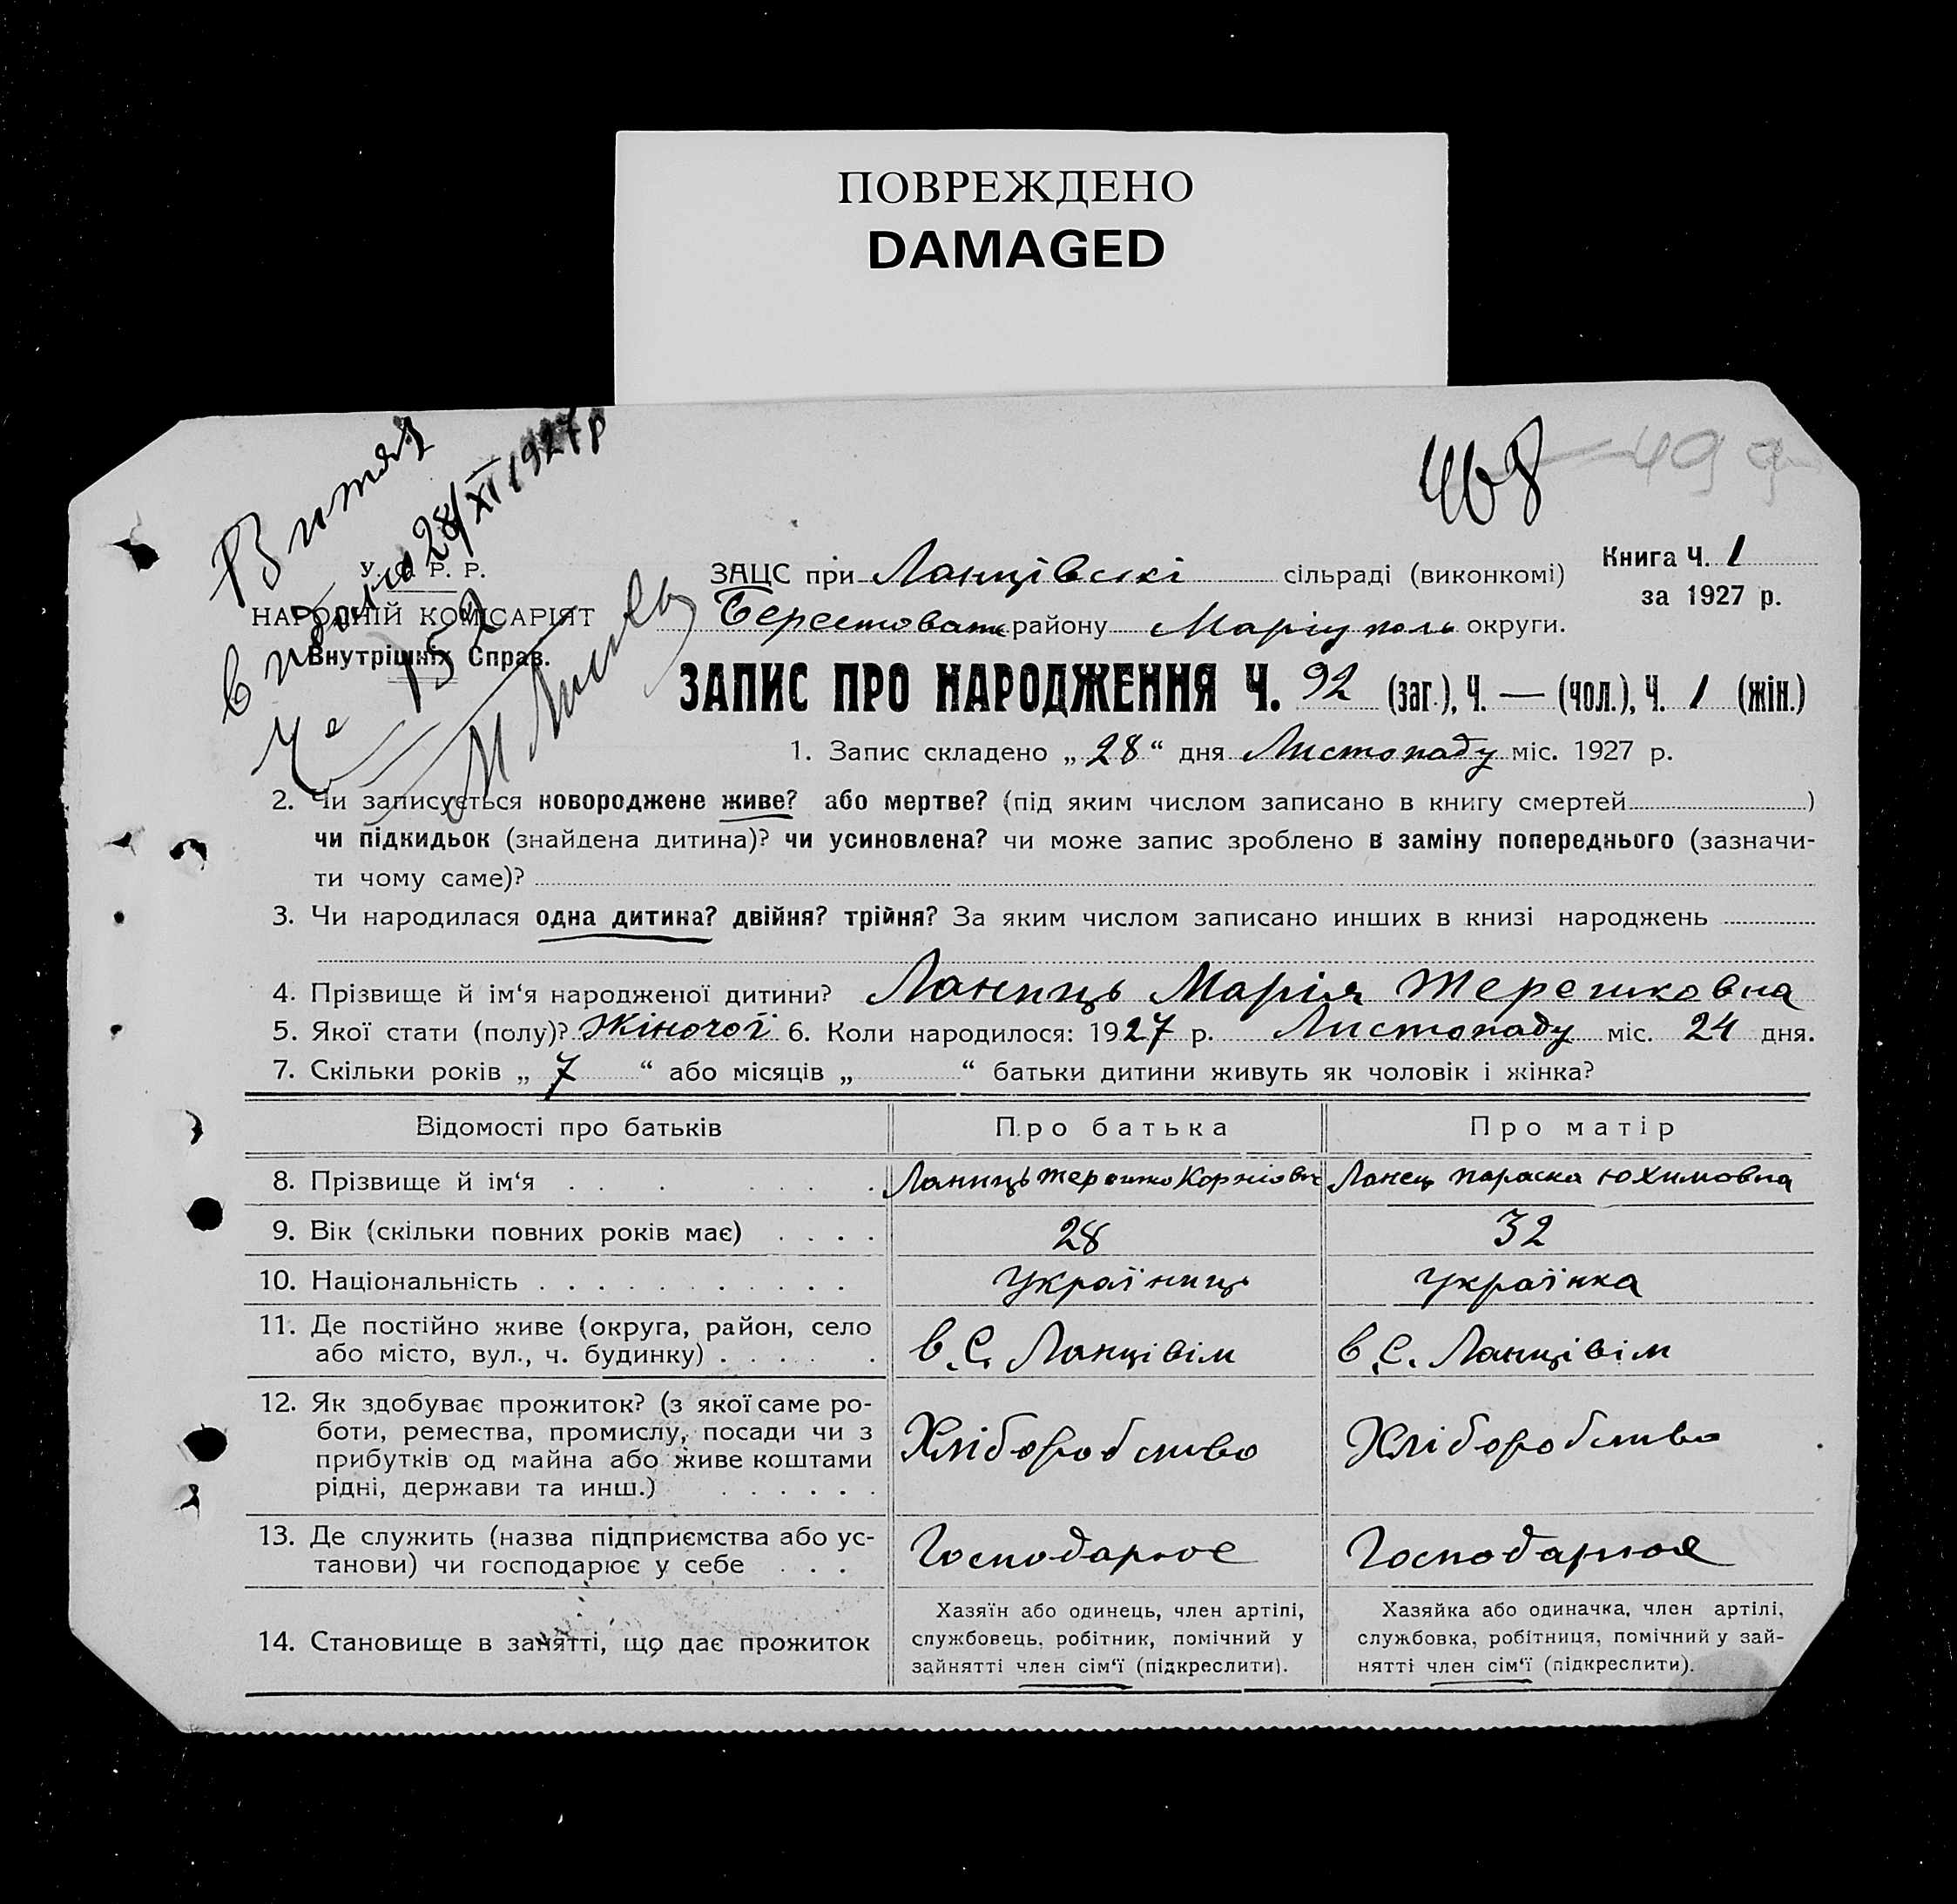 ПОВРЕЖДЕНО
DAMAGED
468 49
Витяг
видано 28/XI 1927 р
Ч 152
У. С. Р. Р.
НАРОДНІЙ КОМІСАРІЯТ
Внутрішніх Справ.
ЗАЦС при Ланцівскі сільраді (виконкомі)
Книга Ч. 1
Берестован району Маріуполь округи.
за 1927 р.
ЗАПИС ПРО НАРОДЖЕННЯ Ч. 92 (заг.), Ч. — (чол.), Ч. 1 (жін.)
1. Запис складено „ 28 “ дня Листопаду міс. 1927 р.
2. Чи записується новороджене живе? або мертве? (під яким числом записано в книгу смертей )
чи підкидьок (знайдена дитина)? чи усиновлена? чи може запис зроблено в заміну попереднього (зазначи-
ти чому саме)?
3. Чи народилася одна дитина? двійня? трійня? За яким числом записано инших в книзі народжень
4. Прізвище й ім‘я народженої дитини? Ланиць Марія Терешковна
5. Якої стати (полу)? Жіночої 6. Коли народилося: 1927 р. Листопаду міс. 24 дня.
7. Скільки років „ 7 “ або місяців „ “ батьки дитини живуть як чоловік і жінка?
Відомості про батьків Про батька Про матір
8. Прізвище й ім‘я . . . . . . . Ланиць Терешко Корніович Ланец Параска Юхимовна
9. Вік (скільки повних років має) . . . . 28 32
10. Національність . . . . . . . . . . . Україниць Українка
11. Де постійно живе (округа, район, село
або місто, вул., ч. будинку) . . . . . в С. Ланцівім в С. Ланцівім
12. Як здобуває прожиток? (з якої саме ро-
боти, ремества, промислу, посади чи з
прибутків од майна або живе коштами
рідні, держави та инш.) . . . . . . Хліборобство Хліборобство
13. Де служить (назва підприємства або ус-
танови) чи господарює у себе . . . Господарює Господарює
14. Становище в занятті, що дає прожиток
Хазяїн або одинець, член артілі,
службовець, робітник, помічний у
зайнятті член сім‘ї (підкреслити).
Хазяйка або одиначка, член артілі,
службовка, робітниця, помічний у зай-
нятті член сім‘ї (підкреслити).